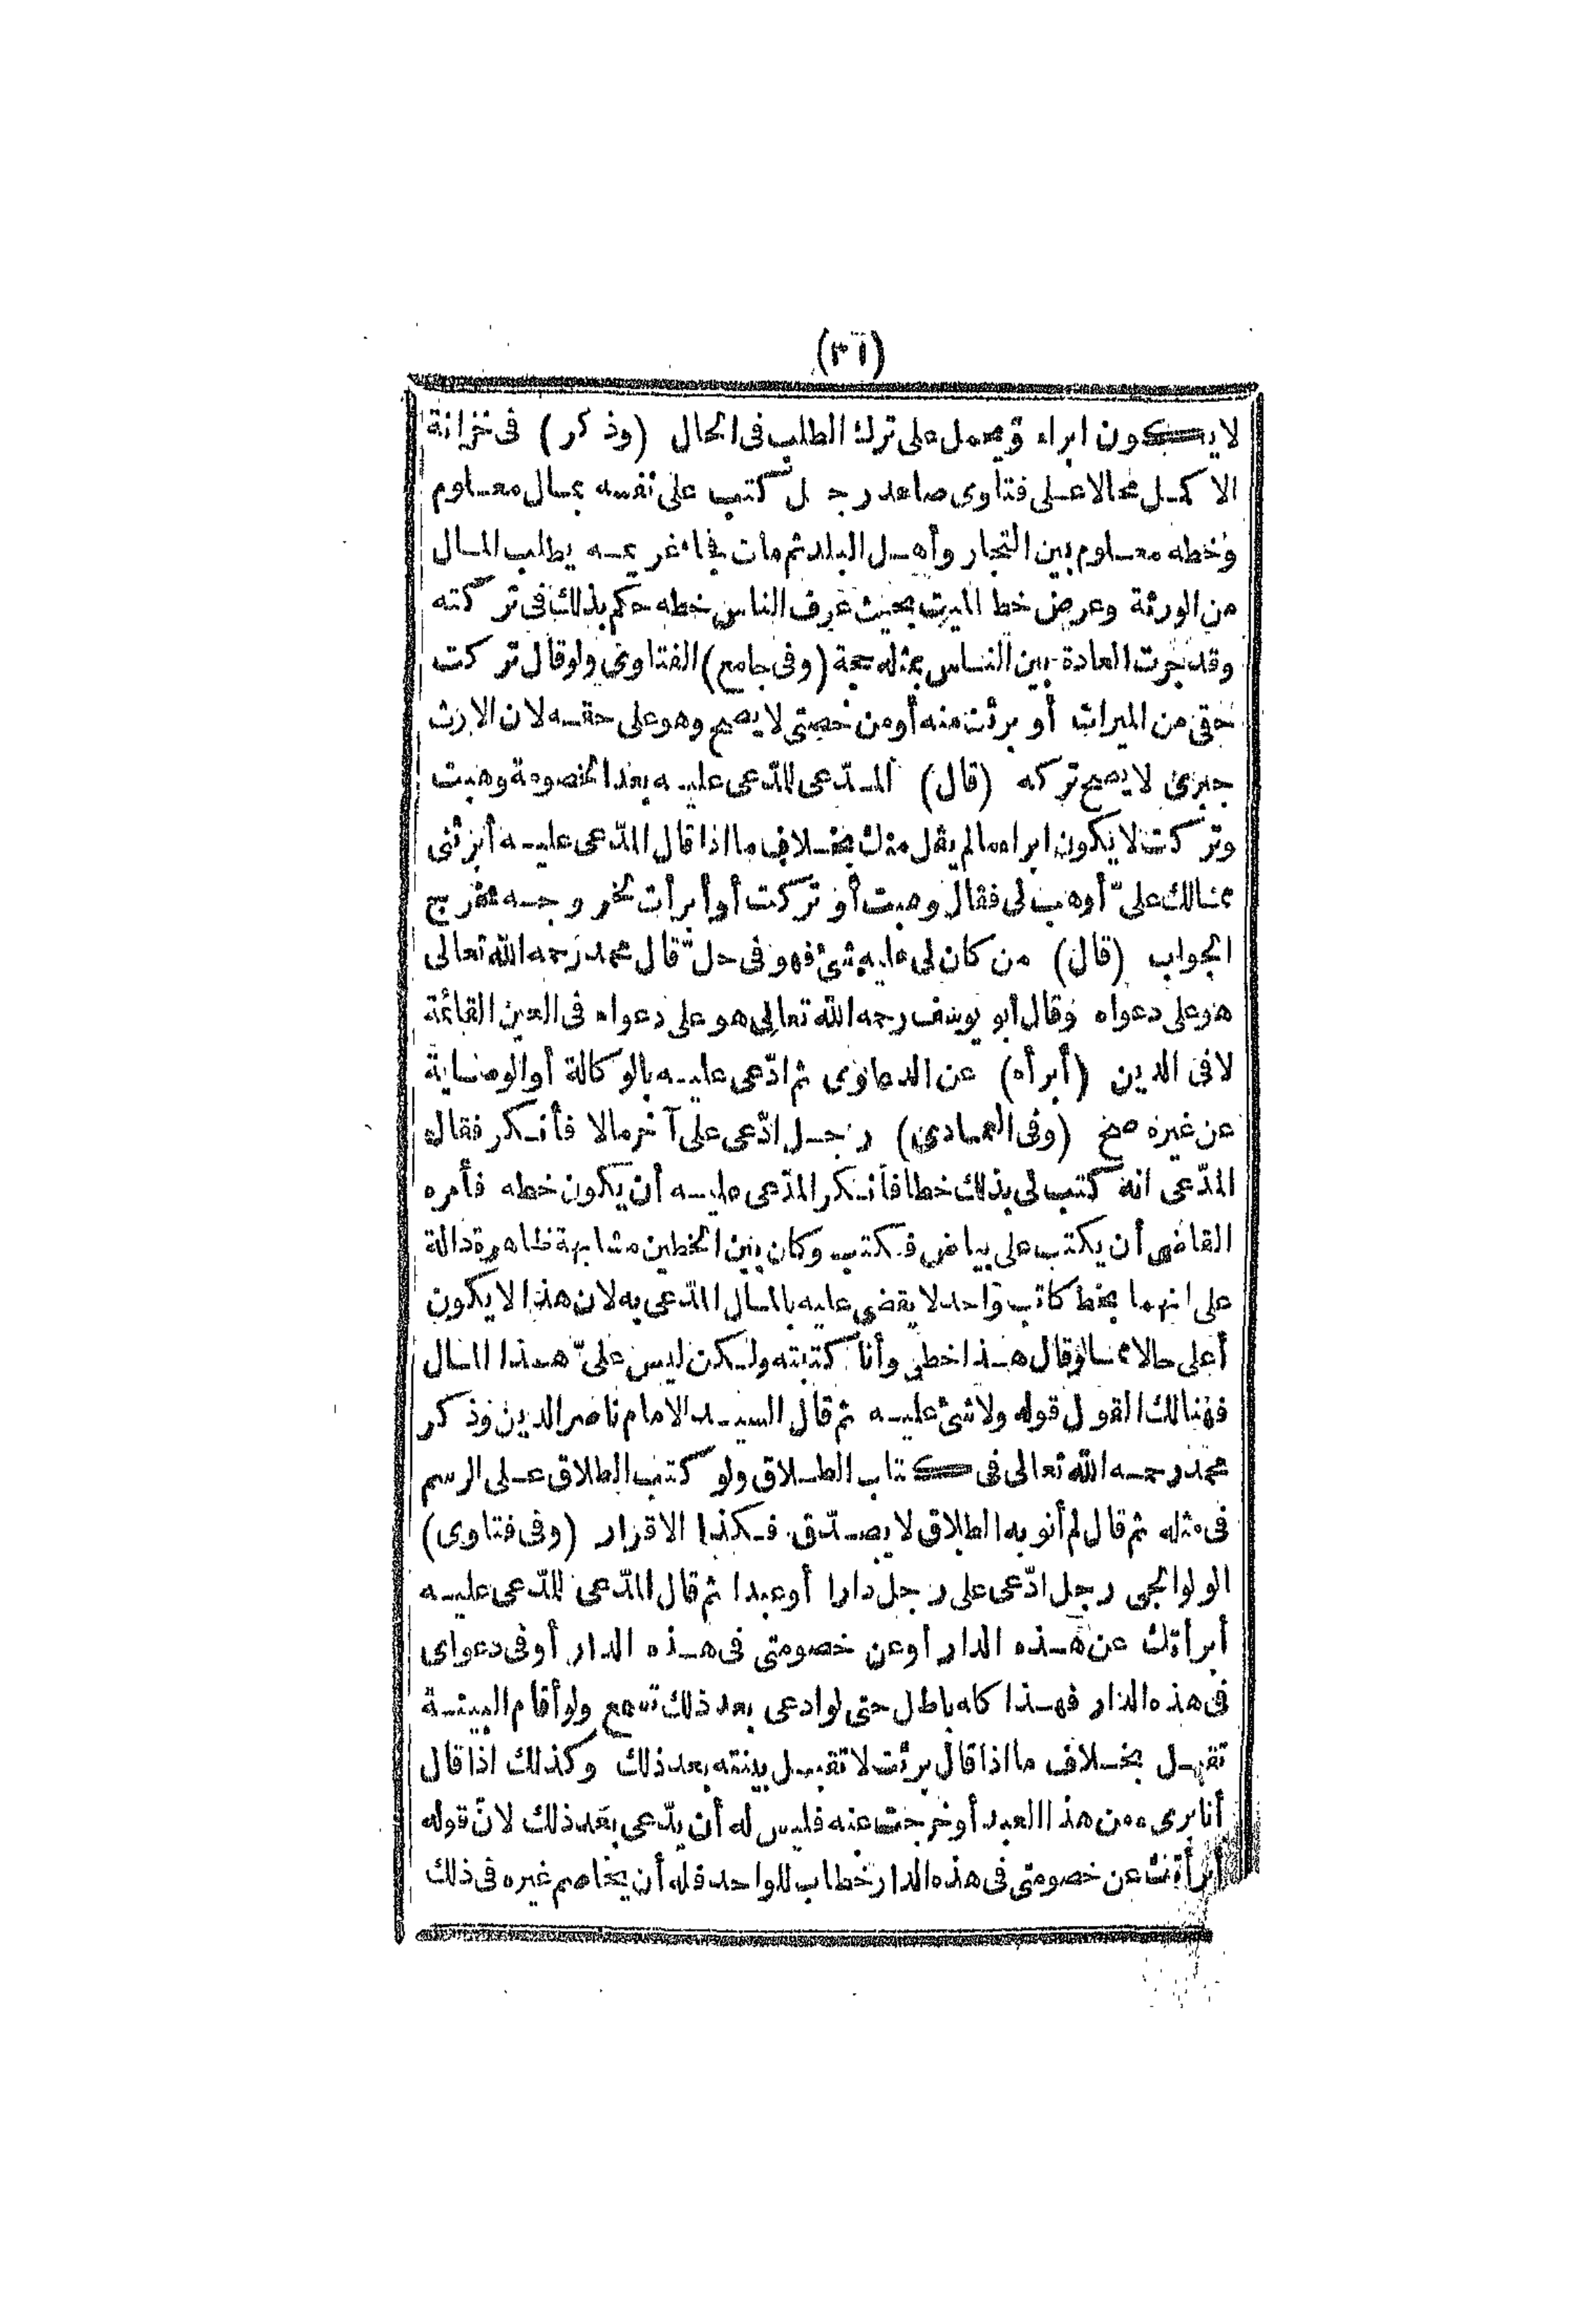 لا يكون ابراء ويحمل على ترك الطلب فى الحال (وذكر) فى خزانة
الاكمل محالا على فتاوى صاعد رجل كتب على نفسه بمال معلوم
وخطه معلوم بين التجار وأهل البلد ثم مات فجاء غريمه يطلب المال
من الورثة وعرض خط الميت بحيث عرف الناس خطه حكم بذلك فى تركته
وقد جرت العادة بين الناس بمثله حجة (وفى جامع) الفتاوى ولو قال تركت
حقى من الميراث أو برئت منه أو من حصتى لا يصح وهو على حقه لان الارث
جبرى لا يصح تركه (قال) المدّعى للمدّعى عليه بعد الخصومة وهبت
وتركت لا يكون ابراء ما لم يقل منك بخلاف ما اذا قال المدّعى عليه أبرئنى
عما لك علىّ أو هب لى فقال وهبت أو تركت أو أبرأت لخروجه مخرج
الجواب (قال) من كان لى عليه شئ فهو فى حلّ قال محمد رحمه الله تعالى
هو على دعواه وقال أبو يوسف رحمه الله تعالى هو على دعواه فى العين القائمة
لا فى الدين (أبرأه) عن الدعاوى ثم ادّعى عليه بالوكالة أو الوصاية
عن غيره صح (وفى العمادى) رجل ادّعى على آخر مالا فأنكر فقال
المدّعى انه كتب لى بذلك خطا فأنكر المدّعى عليه أن يكون خطه فأمره
القاضى أن يكتب على بياض فكتب وكان بين الخطين مشابهة ظاهرة دالة
على انهما بخط كاتب واحد لا يقضى عليه بالمال المدّعى به لان هذا لا يكون
أعلى حالا مما لو قال هذا خطى وأنا كتبته ولكن ليس علىّ هذا المال
فهنالك القول قوله ولا شئ عليه ثم قال السيد الامام ناصر الدين وذكر
محمد رحمه الله تعالى فى كتاب الطلاق ولو كتب الطلاق على الرسم
فى مثله ثم قال لم أنو به الطلاق لا يصدّق فكذا الاقرار (وفى فتاوى)
الولوالجى رجل ادّعى على رجل دارا أو عبدا ثم قال المدّعى للمدّعى عليه
أبرأتك عن هذه الدار أو عن خصومتى فى هذه الدار أو فى دعواى
فى هذه الدار فهذا كله باطل حتى لو ادعى بعد ذلك تسمع ولو أقام البينة
تقبل بخلاف ما اذا قال برئت لا تقبل بينته بعد ذلك وكذلك اذا قال
أنا برىء من هذا العبد أو خرجت عنه فليس له أن يدّعى بعد ذلك لانّ قوله
أبرأتك عن خصومتى فى هذه الدار خطاب للواحد فله أن يخاصم غيره فى ذلك